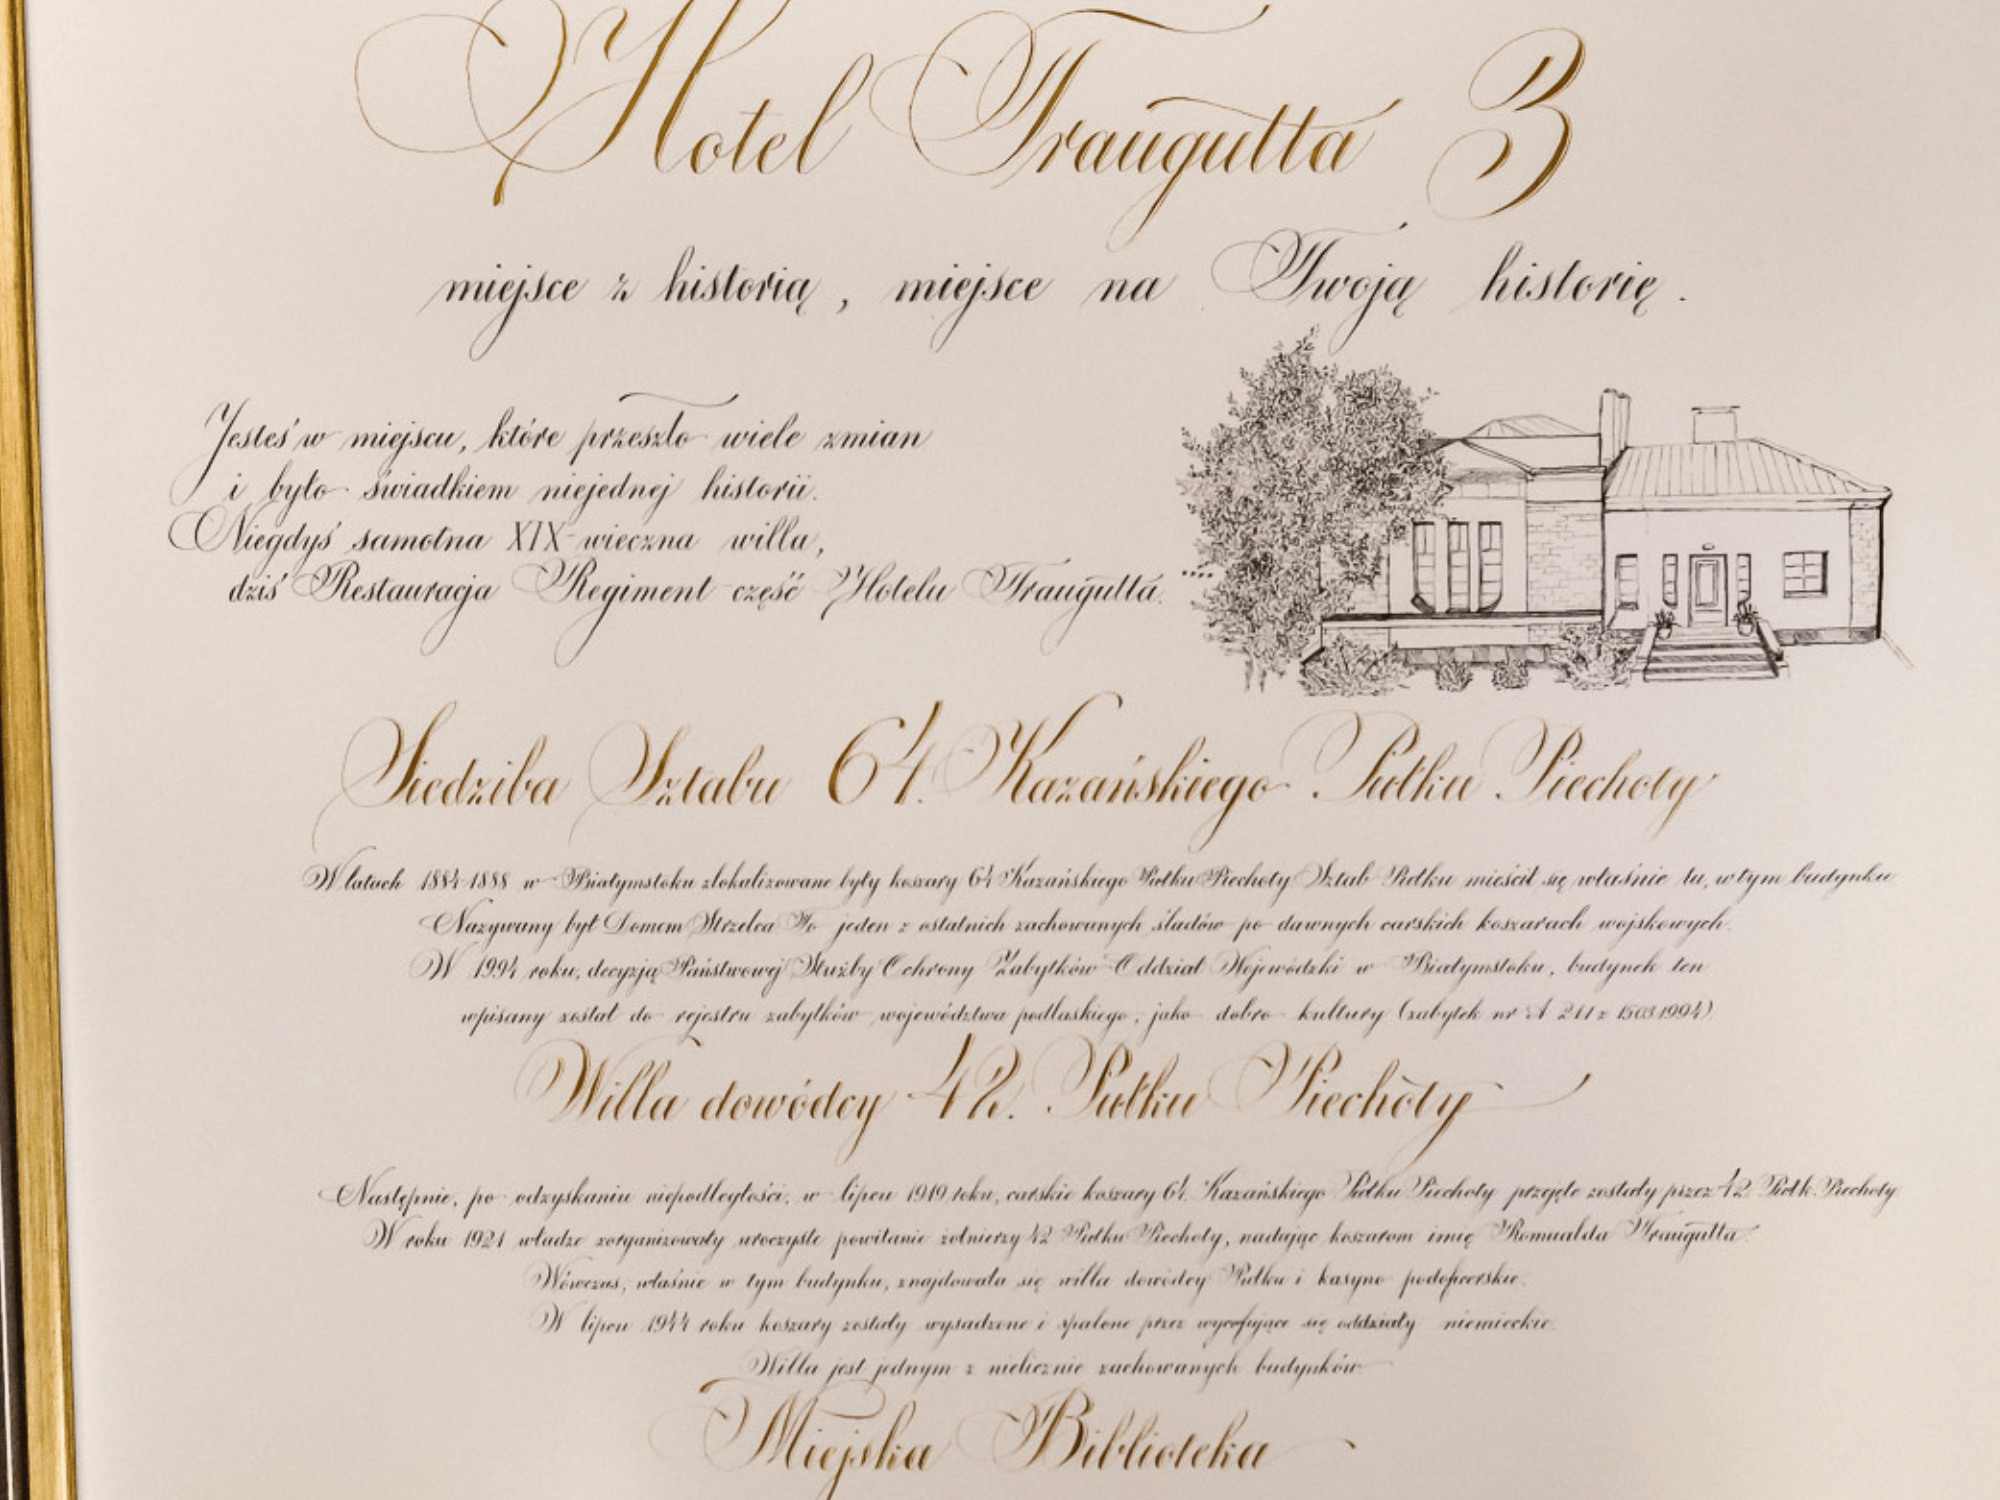 Hotel Traugutta 3
miejsce z historią, miejsce na Twoją historię.
Jesteś w miejscu, które przeszło wiele zmian
i było świadkiem niejednej historii.
Niegdyś samotna XIX-wieczna willa,
dziś Restauracja Regiment część Hotelu Traugutta....
Siedziba Sztabu 64. Kazańskiego Pułku Piechoty
W latach 1884-1888 w Białymstoku zlokalizowane były koszary 64 Kazańskiego Pułku Piechoty Sztab Pułku mieścił się właśnie tu, w tym budynku
Nazywany był Domem Strzelca To jeden z ostatnich zachowanych śladów po dawnych carskich koszarach wojskowych.
W 1994 roku, decyzją Państwowej Służby Ochrony Zabytków Oddział Wojewódzki w Białymstoku, budynek ten
wpisany został do rejestru zabytków województwa podlaskiego, jako dobro kultury (zabytek nr A 211 z 15031994).
Willa dowódcy 42. Pułku Piechoty
Następnie, po odzyskaniu niepodległości, w lipcu 1919 roku, carskie koszary 64. Kazańskiego Pułku Piechoty przejęte zostały przez 42 Pułk Piechoty
W roku 1921 władze zorganizowały uroczyste powitanie żołnierzy 42 Pułku Piechoty, nadając koszarom imię Romualda Traugutta
Wówczas, właśnie w tym budynku, znajdowała się willa dowódcy Pułku i kasyno podoficerskie.
W lipcu 1944 roku koszary zostały wysadzone i spalone przez wycofujące się oddziały niemieckie.
Willa jest jednym z nielicznie zachowanych budynków
Miejska Biblioteka